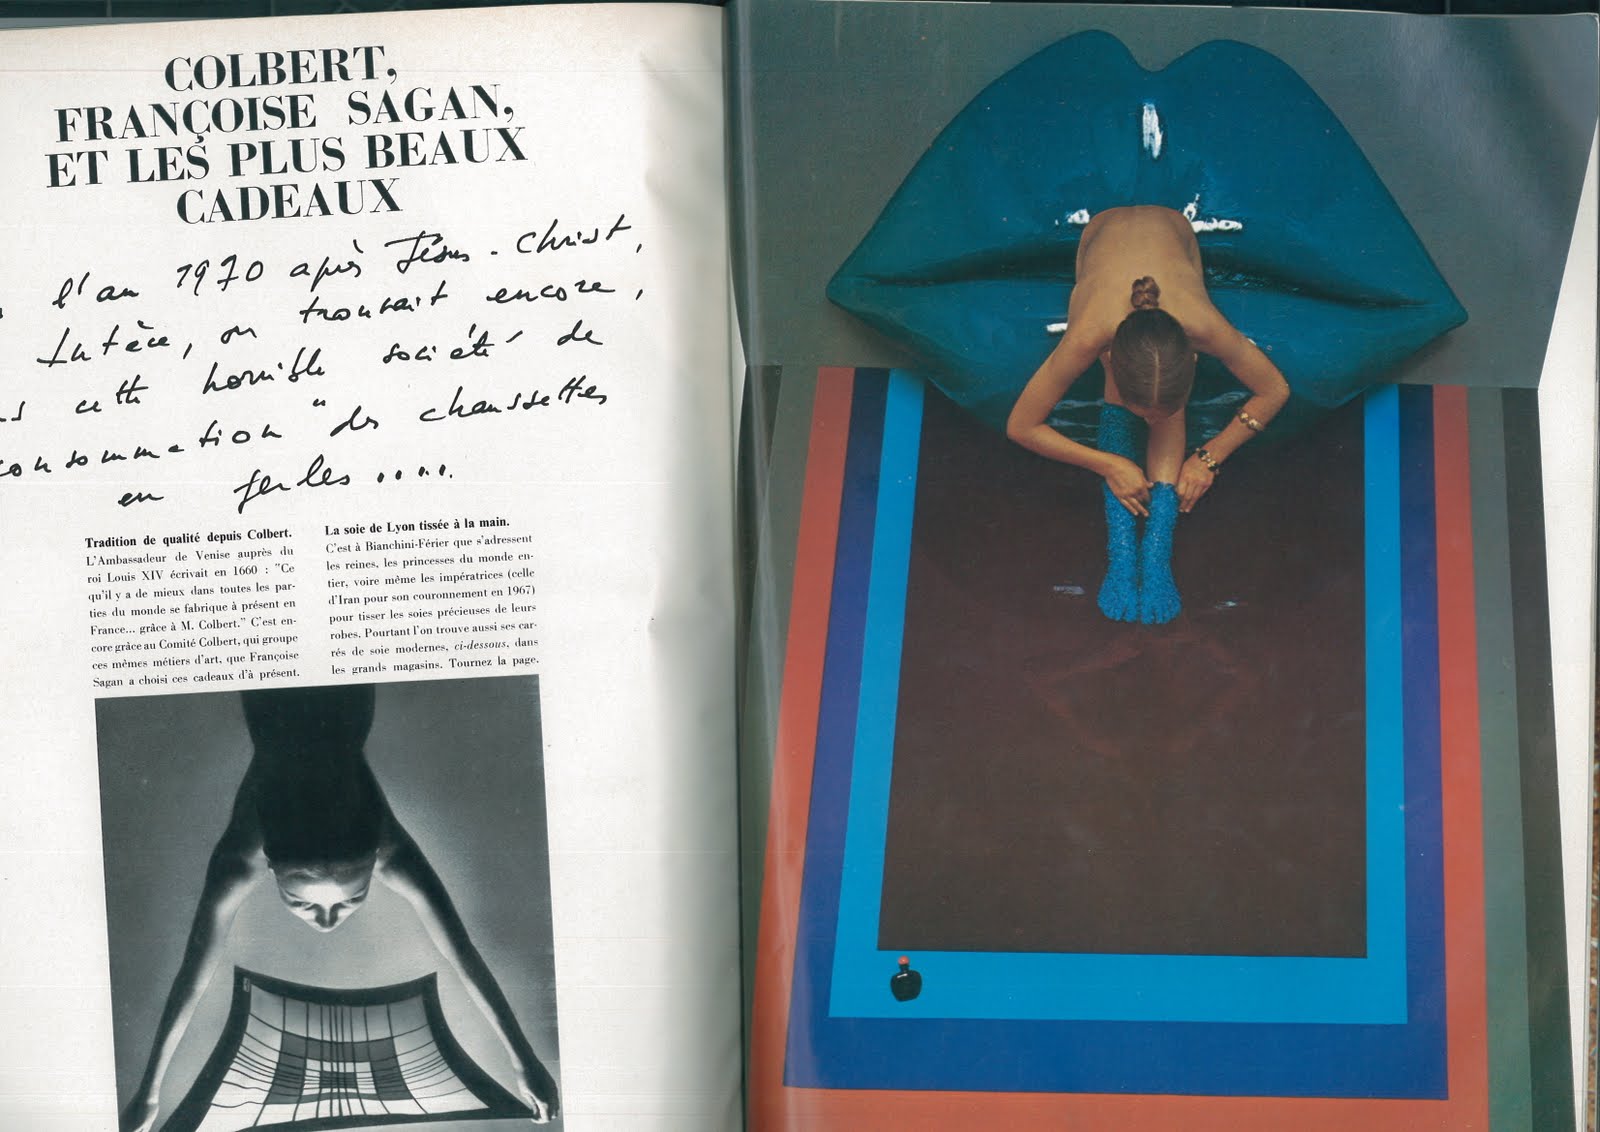 COLBERT,
FRANÇOISE SAGAN,
ET LES PLUS BEAUX
CADEAUX
l'an 1970 après Jésus-Christ,
Lutèce, on trouvait encore,
cette horrible société de
consommation "des chaussettes
en perles ....
Tradition de qualité depuis Colbert.
L'Ambassadeur de Venise auprès du
roi Louis XIV écrivait en 1660 : "Ce
qu'il y a de mieux dans toutes les par-
ties du monde se fabrique à présent en
France... grâce à M. Colbert." C'est en-
core grâce au Comité Colbert, qui groupe
ces mêmes métiers d'art, que Françoise
Sagan a choisi ces cadeaux d'à présent.
La soie de Lyon tissée à la main.
C'est à Bianchini-Férier que s'adressent
les reines, les princesses du monde en-
tier, voire même les impératrices (celle
d'Iran pour son couronnement en 1967)
pour tisser les soies précieuses de leurs
robes. Pourtant l'on trouve aussi ses car-
rés de soie modernes, ci-dessous, dans
les grands magasins. Tournez la page.